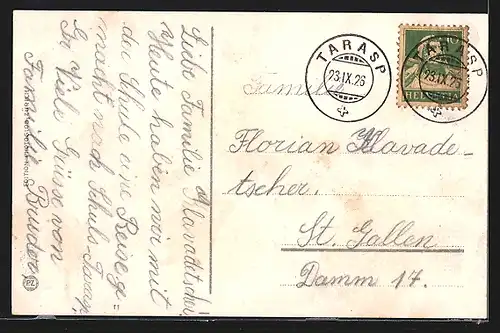 Liebe Familie Klavadetscher!
Heute haben wir mit
der Schule eine Reise ge=
macht nach Schuls-Tarasp
Gr. Viele Grüsse von
Familie Bruder,
TARASP
23.IX.26
TARASP
23.IX.26
HELVETIA
Familie
Florian Klavade-
tscher.
St. Gallen
Damm 17.